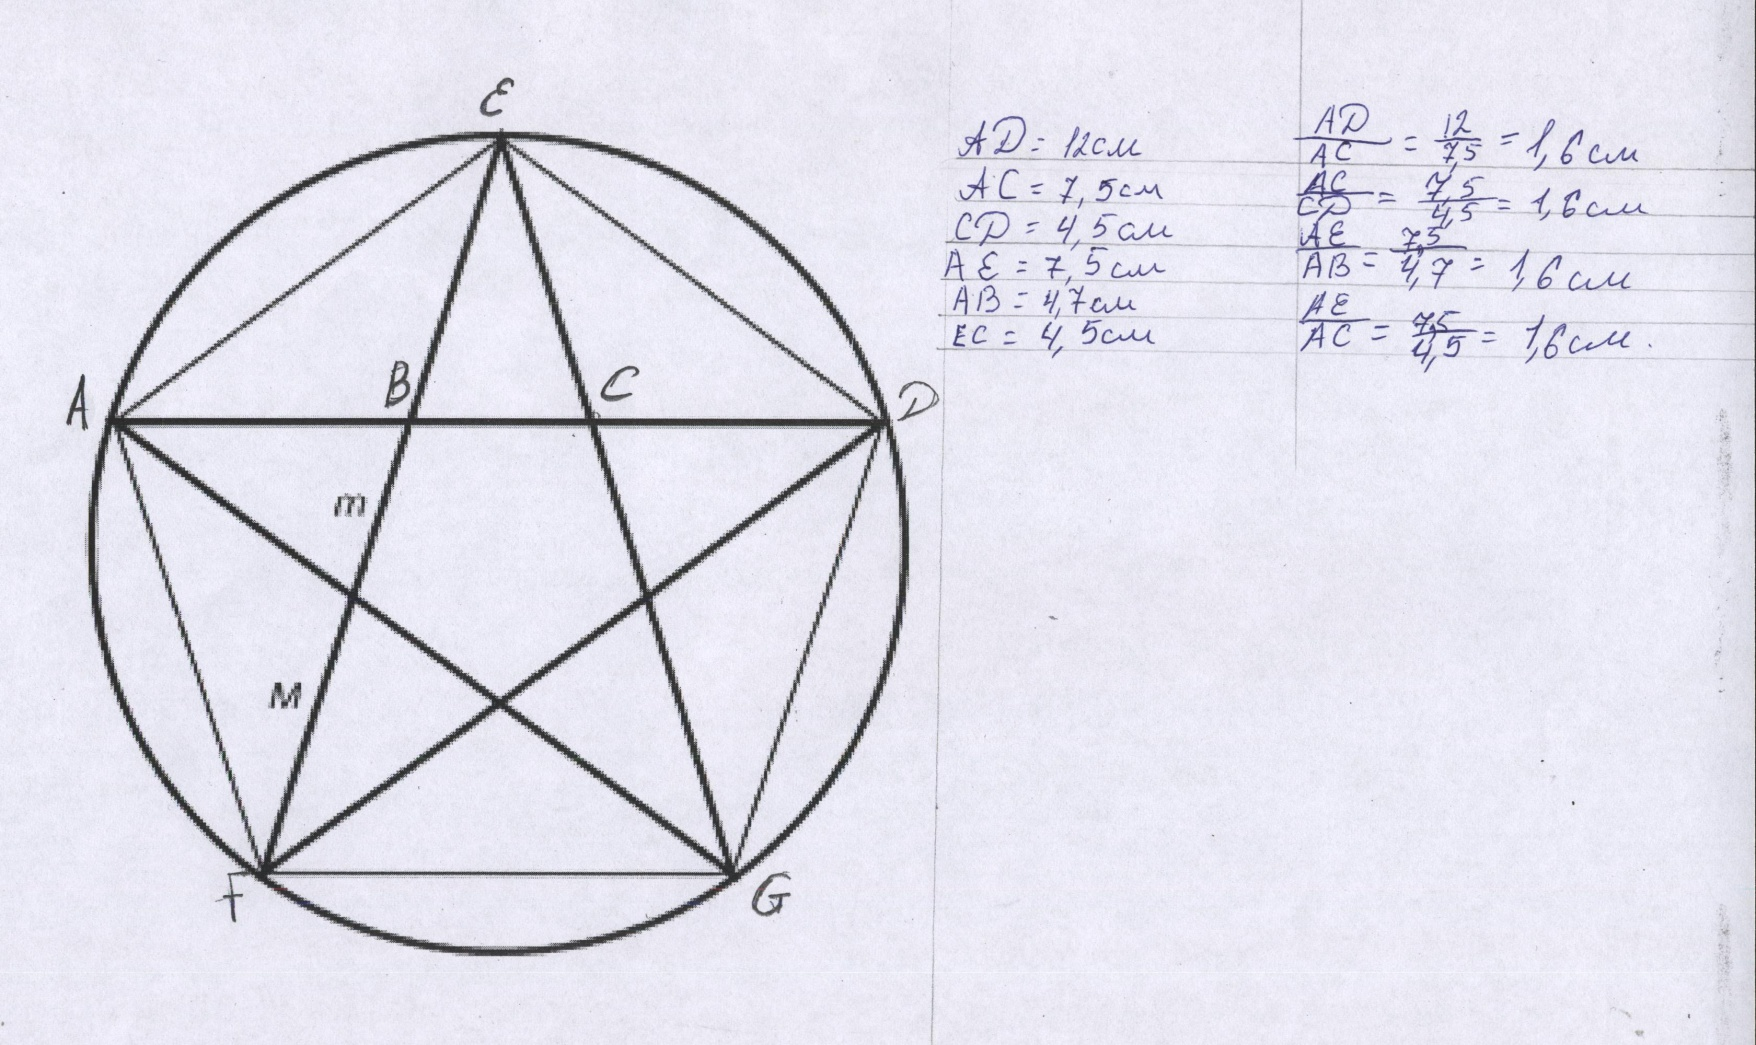 E
A
B
C
D
m
M
F
G
AD = 12см
AC = 7,5см
CD = 4,5см
AE = 7,5см
AB = 4,7см
EC = 4,5см
AD/AC = 12/7,5 = 1,6см
AC/CD = 7,5/4,5 = 1,6см
AE/AB = 7,5/4,7 = 1,6см
AE/AC = 7,5/4,5 = 1,6см.